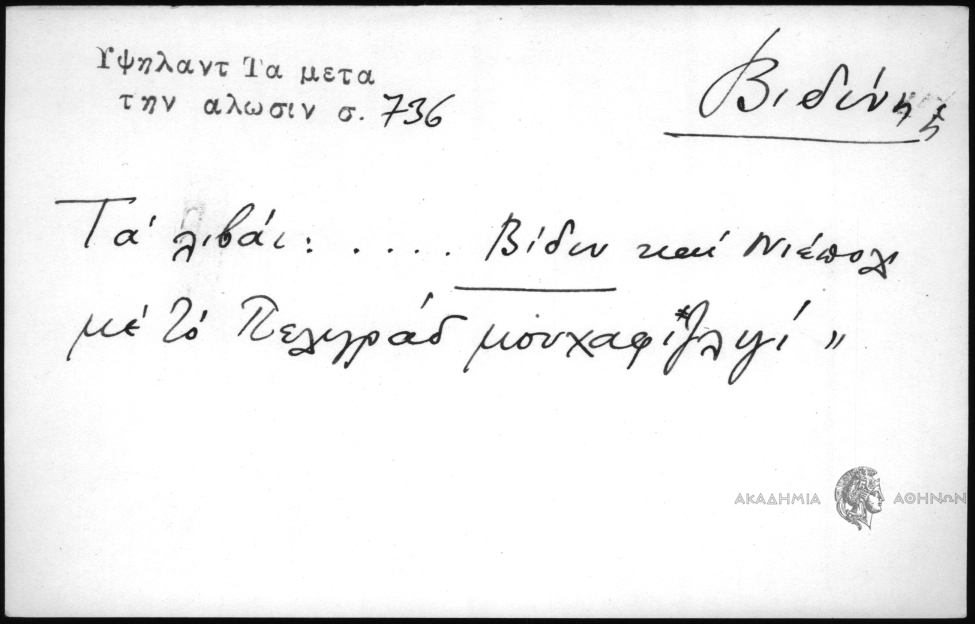 Υψηλαντ Τα μετα
την αλωσιν σ. 736
Βιδίνη
Τά λιβάι: .... Βίδιν καί Νιέπολι
μέ τό Πελιγράδ μουχαφιζλιγί "
ΑΚΑΔΗΜΙΑ ΑΘΗΝΩΝ